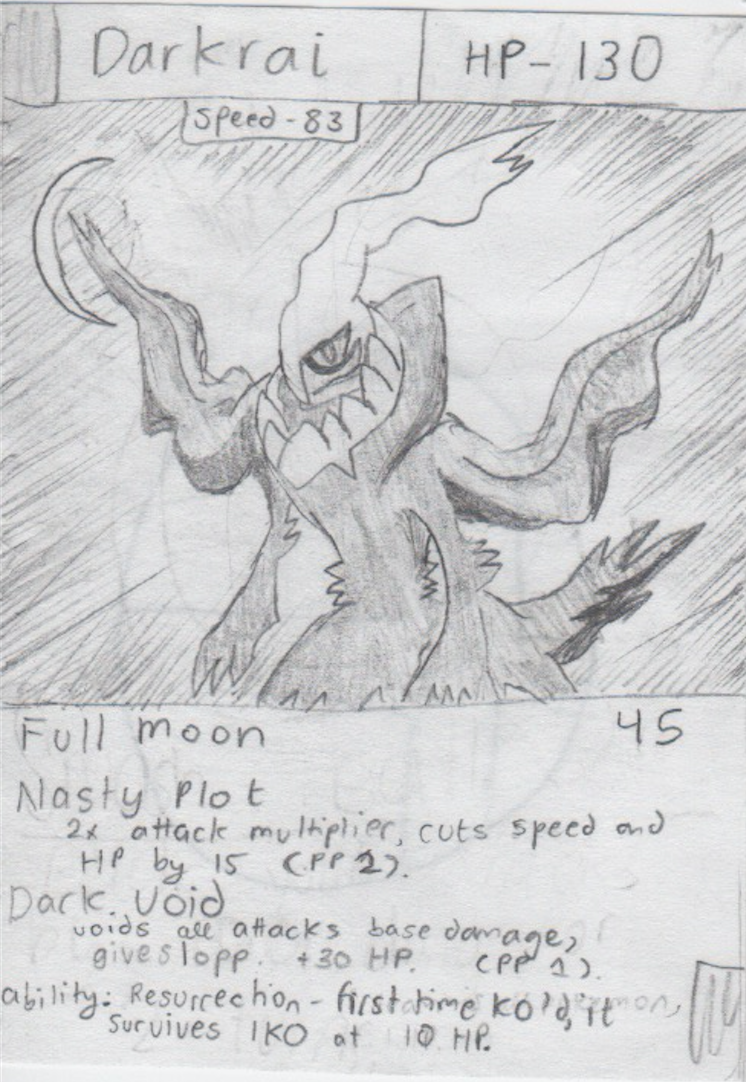 Darkrai
HP- 130
Speed - 83
Full moon 45
Nasty Plot
2x attack multiplier, cuts speed and
HP by 15 (PP 2).
Dark Void
voids all attacks base damage,
gives 1 opp. +30 HP. (PP 1).
ability: Resurrection - first time KO'd, it
survives 1KO at 10 HP.